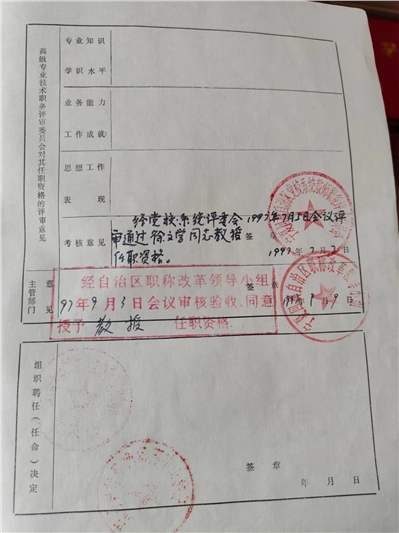 高级专业技术职务评审委员会对其任职资格的评审意见
专业知识
学识水平
业务能力
工作成就
思想工作
表现
考核意见
经党校系统评委会1997年7月2日会议评
审通过徐文学同志教授
任职资格。
签章
1997.7.2
主管部门意见
经自治区职称改革领导小组
97年9月3日会议审核验收、同意
授予 教授 任职资格.
签章
组织聘任(任命)决定
签章
年月日